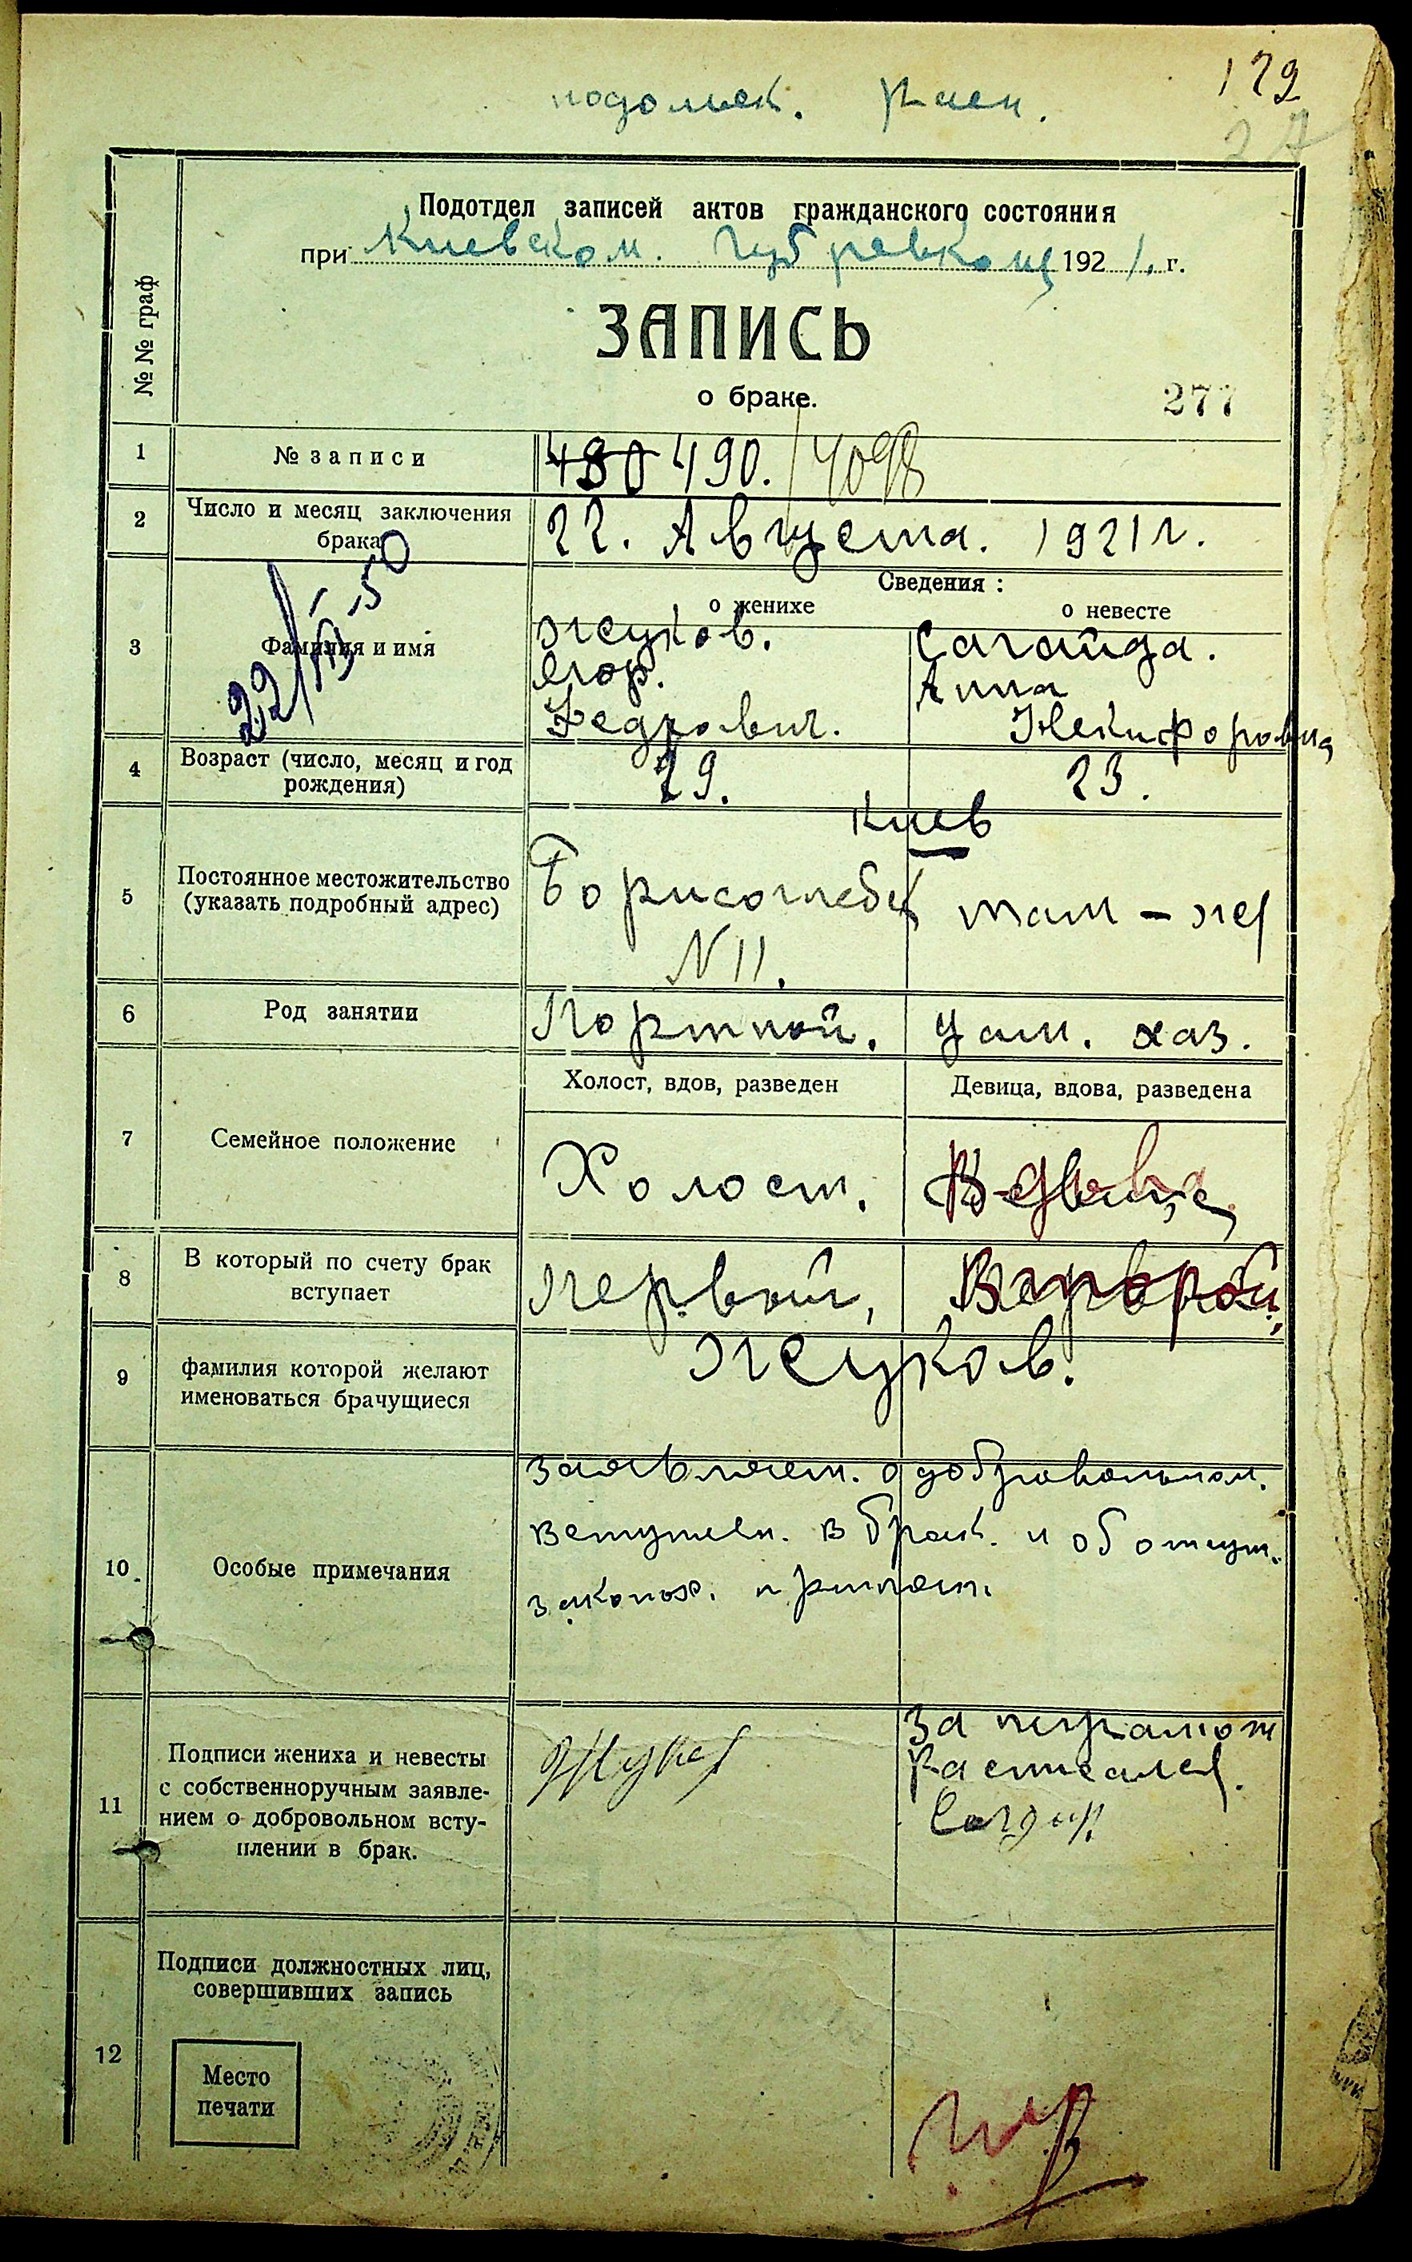 179
подольск. Раен.
Подотдел записей актов гражданского состояния
при Киевском. Губревкоме 1921. г.
№№ граф
ЗАПИСЬ
о браке.
277
1 № записи 480 490. / 4098
2 Число и месяц заключения брака 22. Августа. 1921 г.
Сведения:
о женихе о невесте
3 Фамилия и имя
Жуков. Сагайда.
Егор. Анна
Федрович. Некифоровна
22/VII-50
4 Возраст (число, месяц и год рождения) 29. 23.
Киев
5 Постоянное местожительство (указать подробный адрес)
Борисоглебск там-же
N 11.
6 Род занятии Портной. дам. хаз.
Холост, вдов, разведен Девица, вдова, разведена
7 Семейное положение Холост. Вдова
8 В который по счету брак вступает первый, Второй
9 фамилия которой желают именоваться брачущиеся Жуков.
10. Особые примечания
заявляют. о добровольном.
вступлен. в брак. и об отсут.
законох. препят.
11 Подписи жениха и невесты
с собственноручным заявле-
нием о добровольном всту-
плении в брак.
Жуков
за неграмот
Расписался.
12 Подписи должностных лиц,
совершивших запись
Место
печати